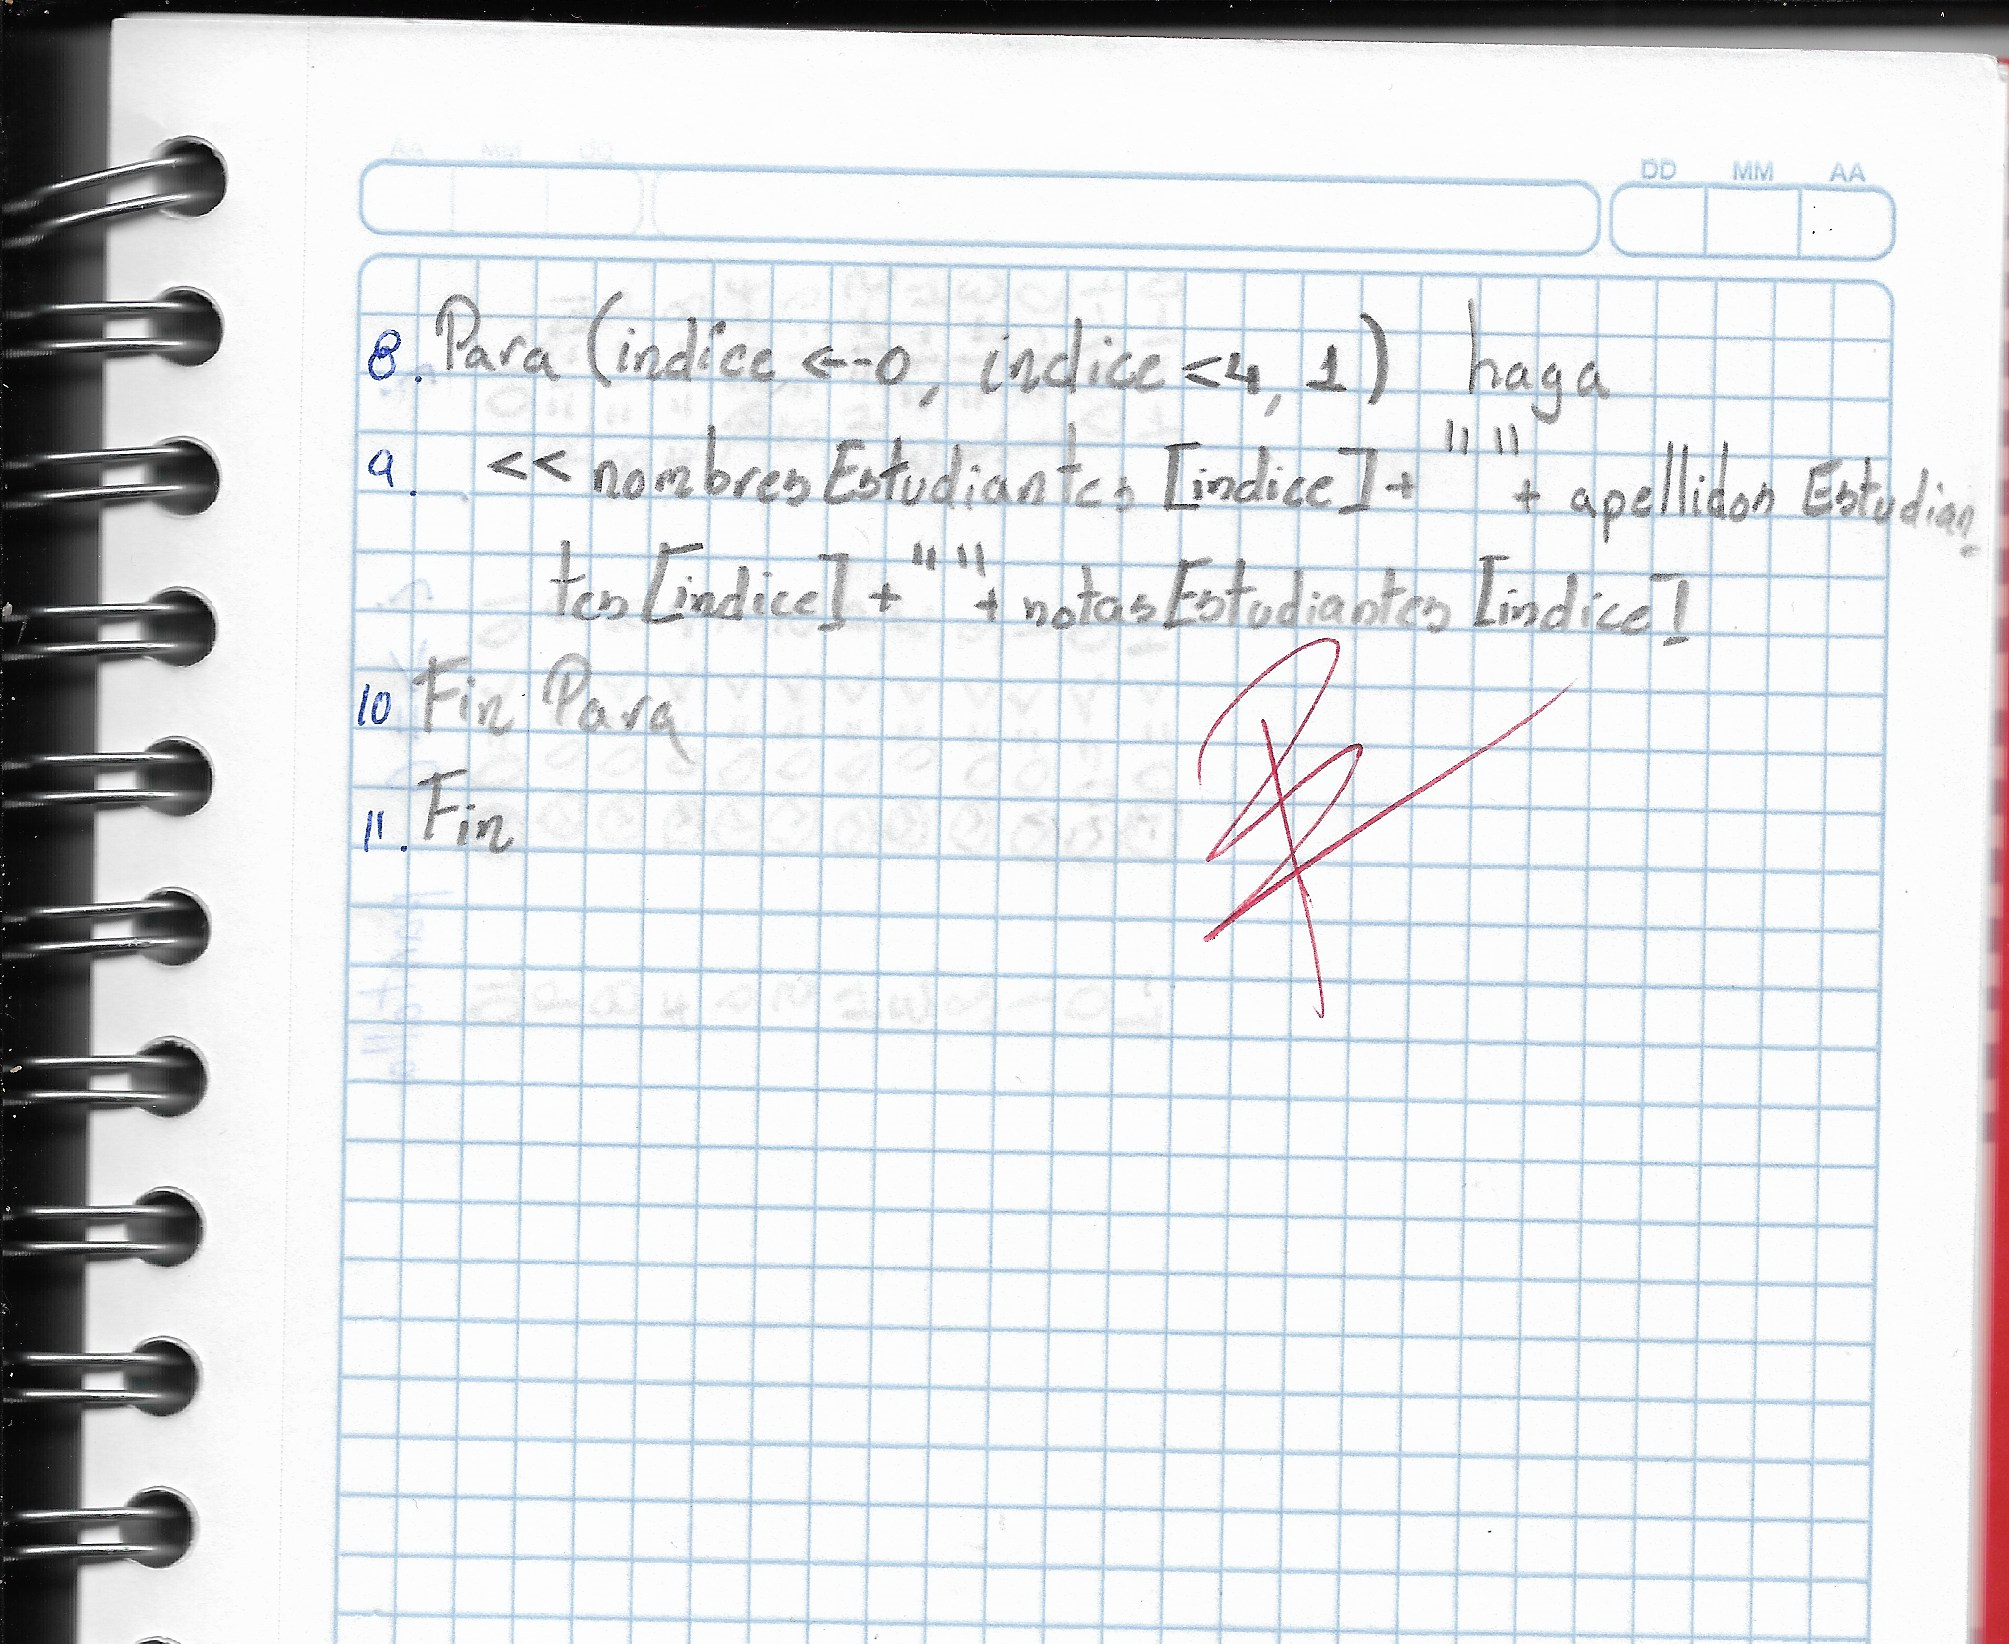 DD MM AA
8. Para (indice <-0, indice <4, 1) haga
9. << nombresEstudiantes [indice] + " " + apellidos Estudian
tes [indice] + " " + notasEstudiantes [indice]
10 Fin Para
11. Fin